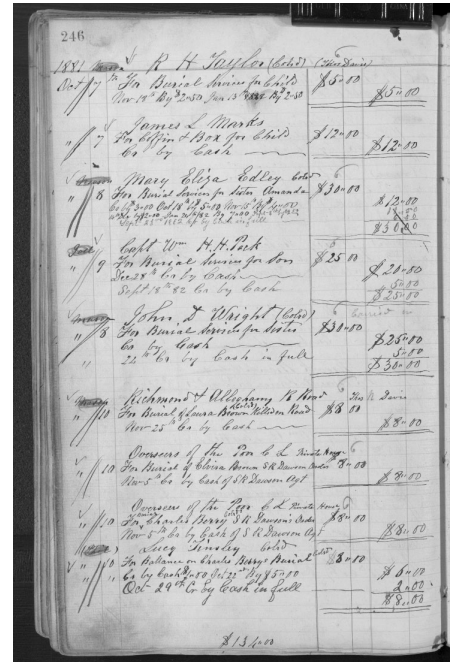 246
1881 R H Taylor (Cold) (Thos Davis)
Oct 7th For Burial Services for Child $5"00
Nov 14th By $2"50 Jan 13th 1882 By 2"50 $5"00
James L Marks
" 7 For Coffin & Box for Child $12"00
Cr by Cash $12"00
Mary Eliza Edley Cold
" 8 For Burial Services for Sister Amanda $30"00
$12"00
$30"00
Capt Wm H. H. Peck
" 9 For Burial Services for Son $25 00
Dec 28th Cr by Cash $20"00
Sept 18th 82 Cr by Cash 5"00
$25"00
John D Wright (Cold)
" 8 For Burial Services for Sister $30"00
Cr by Cash $25"00
" 24th Cr by Cash in full 5"00
$30"00
Richmond & Alleghany R Road Thos N Davis
" 10 For Burial of Laura Brown (Cold) Killed on Road $8 00
Nov 25th Cr by Cash $8"00
Overseers of the Poor C L Private House
" 10 For Burial of Elvira Brown S R Dawson Order $8"00
Nov 5th Cr by Cash of S R Dawson Agt $8"00
Overseers of the Poor C L Private House
" 10 For Charles Berry Cold S R Dawson's Order $8"00
Nov 5th Cr by Cash of S R Dawson Agt $8"00
Lucy Tinsley Cold
" 10 For Ballance on Charles Berrys Burial $8"00
Cr by Cash $1"00 Oct 22nd By $5"00 $6"00
Oct 29th Cr by Cash in full 2"00
$8"00
$134"00